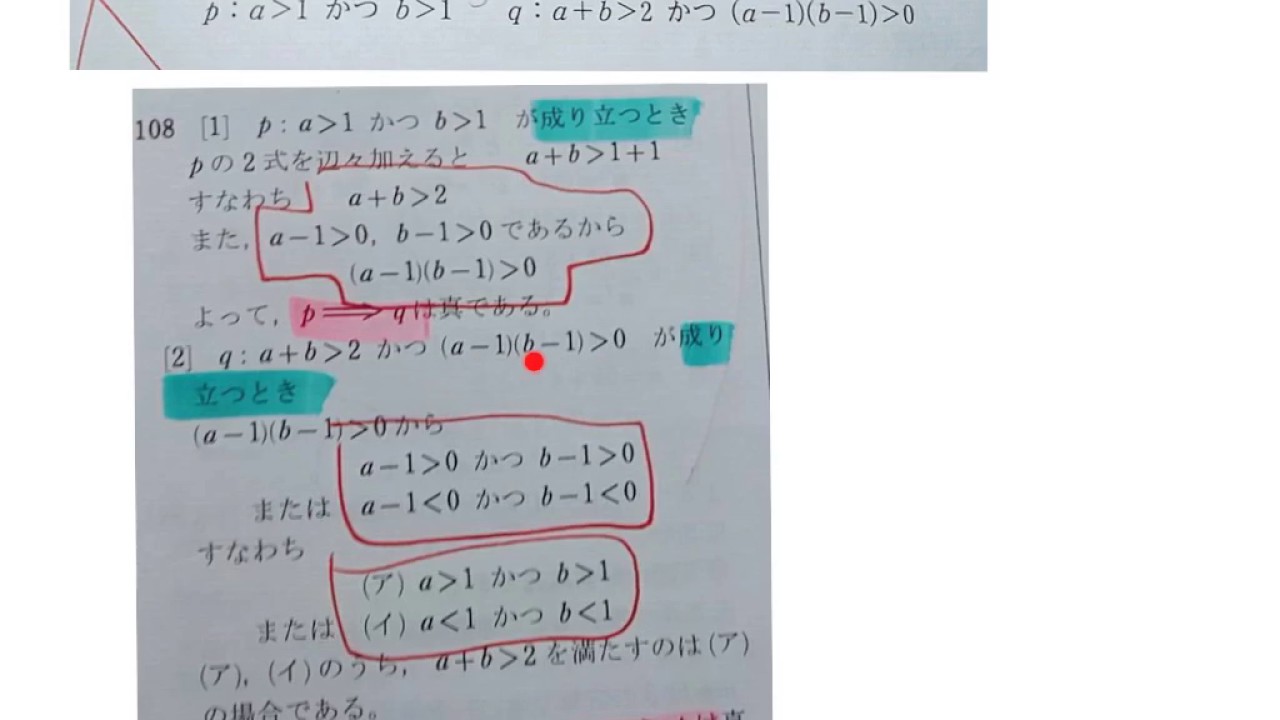 p：a＞1 かつ b＞1　q：a＋b＞2 かつ (a－1)(b－1)＞0
108 [1] p：a＞1 かつ b＞1 が成り立つとき
pの2式を辺々加えると a＋b＞1＋1
すなわち a＋b＞2
また，a－1＞0，b－1＞0 であるから
(a－1)(b－1)＞0
よって，p ⟹ q は真である。
[2] q：a＋b＞2 かつ (a－1)(b－1)＞0 が成り
立つとき
(a－1)(b－1)＞0 から
a－1＞0 かつ b－1＞0
または a－1＜0 かつ b－1＜0
すなわち
(ア) a＞1 かつ b＞1
または (イ) a＜1 かつ b＜1
(ア)，(イ)のうち，a＋b＞2 を満たすのは(ア)
の場合である。